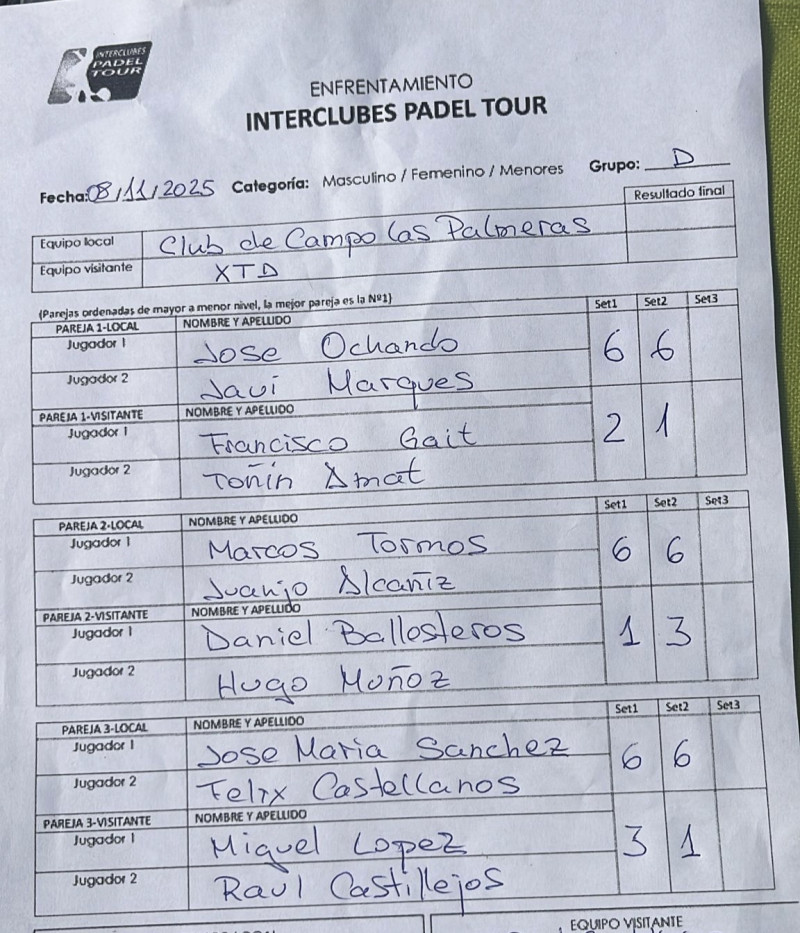 INTERCLUBES
PADEL
TOUR
ENFRENTAMIENTO
INTERCLUBES PADEL TOUR
Fecha: 08/11/2025 Categoría: Masculino / Femenino / Menores Grupo: D
Resultado final
Equipo local Club de Campo Las Palmeras
Equipo visitante XTD
(Parejas ordenadas de mayor a menor nivel, la mejor pareja es la Nº1) Set1 Set2 Set3
PAREJA 1-LOCAL NOMBRE Y APELLIDO
Jugador 1 Jose Ochando 6 6
Jugador 2 Javi Marques
PAREJA 1-VISITANTE NOMBRE Y APELLIDO
Jugador 1 Francisco Gait 2 1
Jugador 2 Toñin Amat
Set1 Set2 Set3
PAREJA 2-LOCAL NOMBRE Y APELLIDO
Jugador 1 Marcos Tormos 6 6
Jugador 2 Juanjo Alcañiz
PAREJA 2-VISITANTE NOMBRE Y APELLIDO
Jugador 1 Daniel Ballosteros 1 3
Jugador 2 Hugo Muñoz
Set1 Set2 Set3
PAREJA 3-LOCAL NOMBRE Y APELLIDO
Jugador 1 Jose Maria Sanchez 6 6
Jugador 2 Felix Castellanos
PAREJA 3-VISITANTE NOMBRE Y APELLIDO
Jugador 1 Miguel Lopez 3 1
Jugador 2 Raul Castillejos
EQUIPO VISITANTE